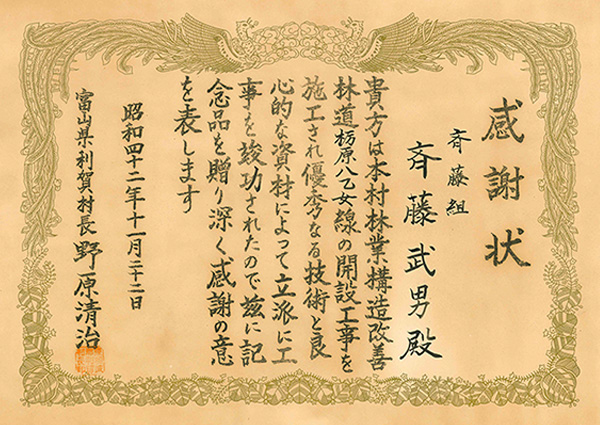 感謝状
斉藤組
斉藤武男殿
貴方は本村林業構造改善
林道栃原八乙女線の開設工事を
施工され優秀なる技術と良
心的な資材によって立派に工
事を竣功されたので茲に記
念品を贈り深く感謝の意
を表します
昭和四十二年十一月二十二日
富山県利賀村長 野原清治